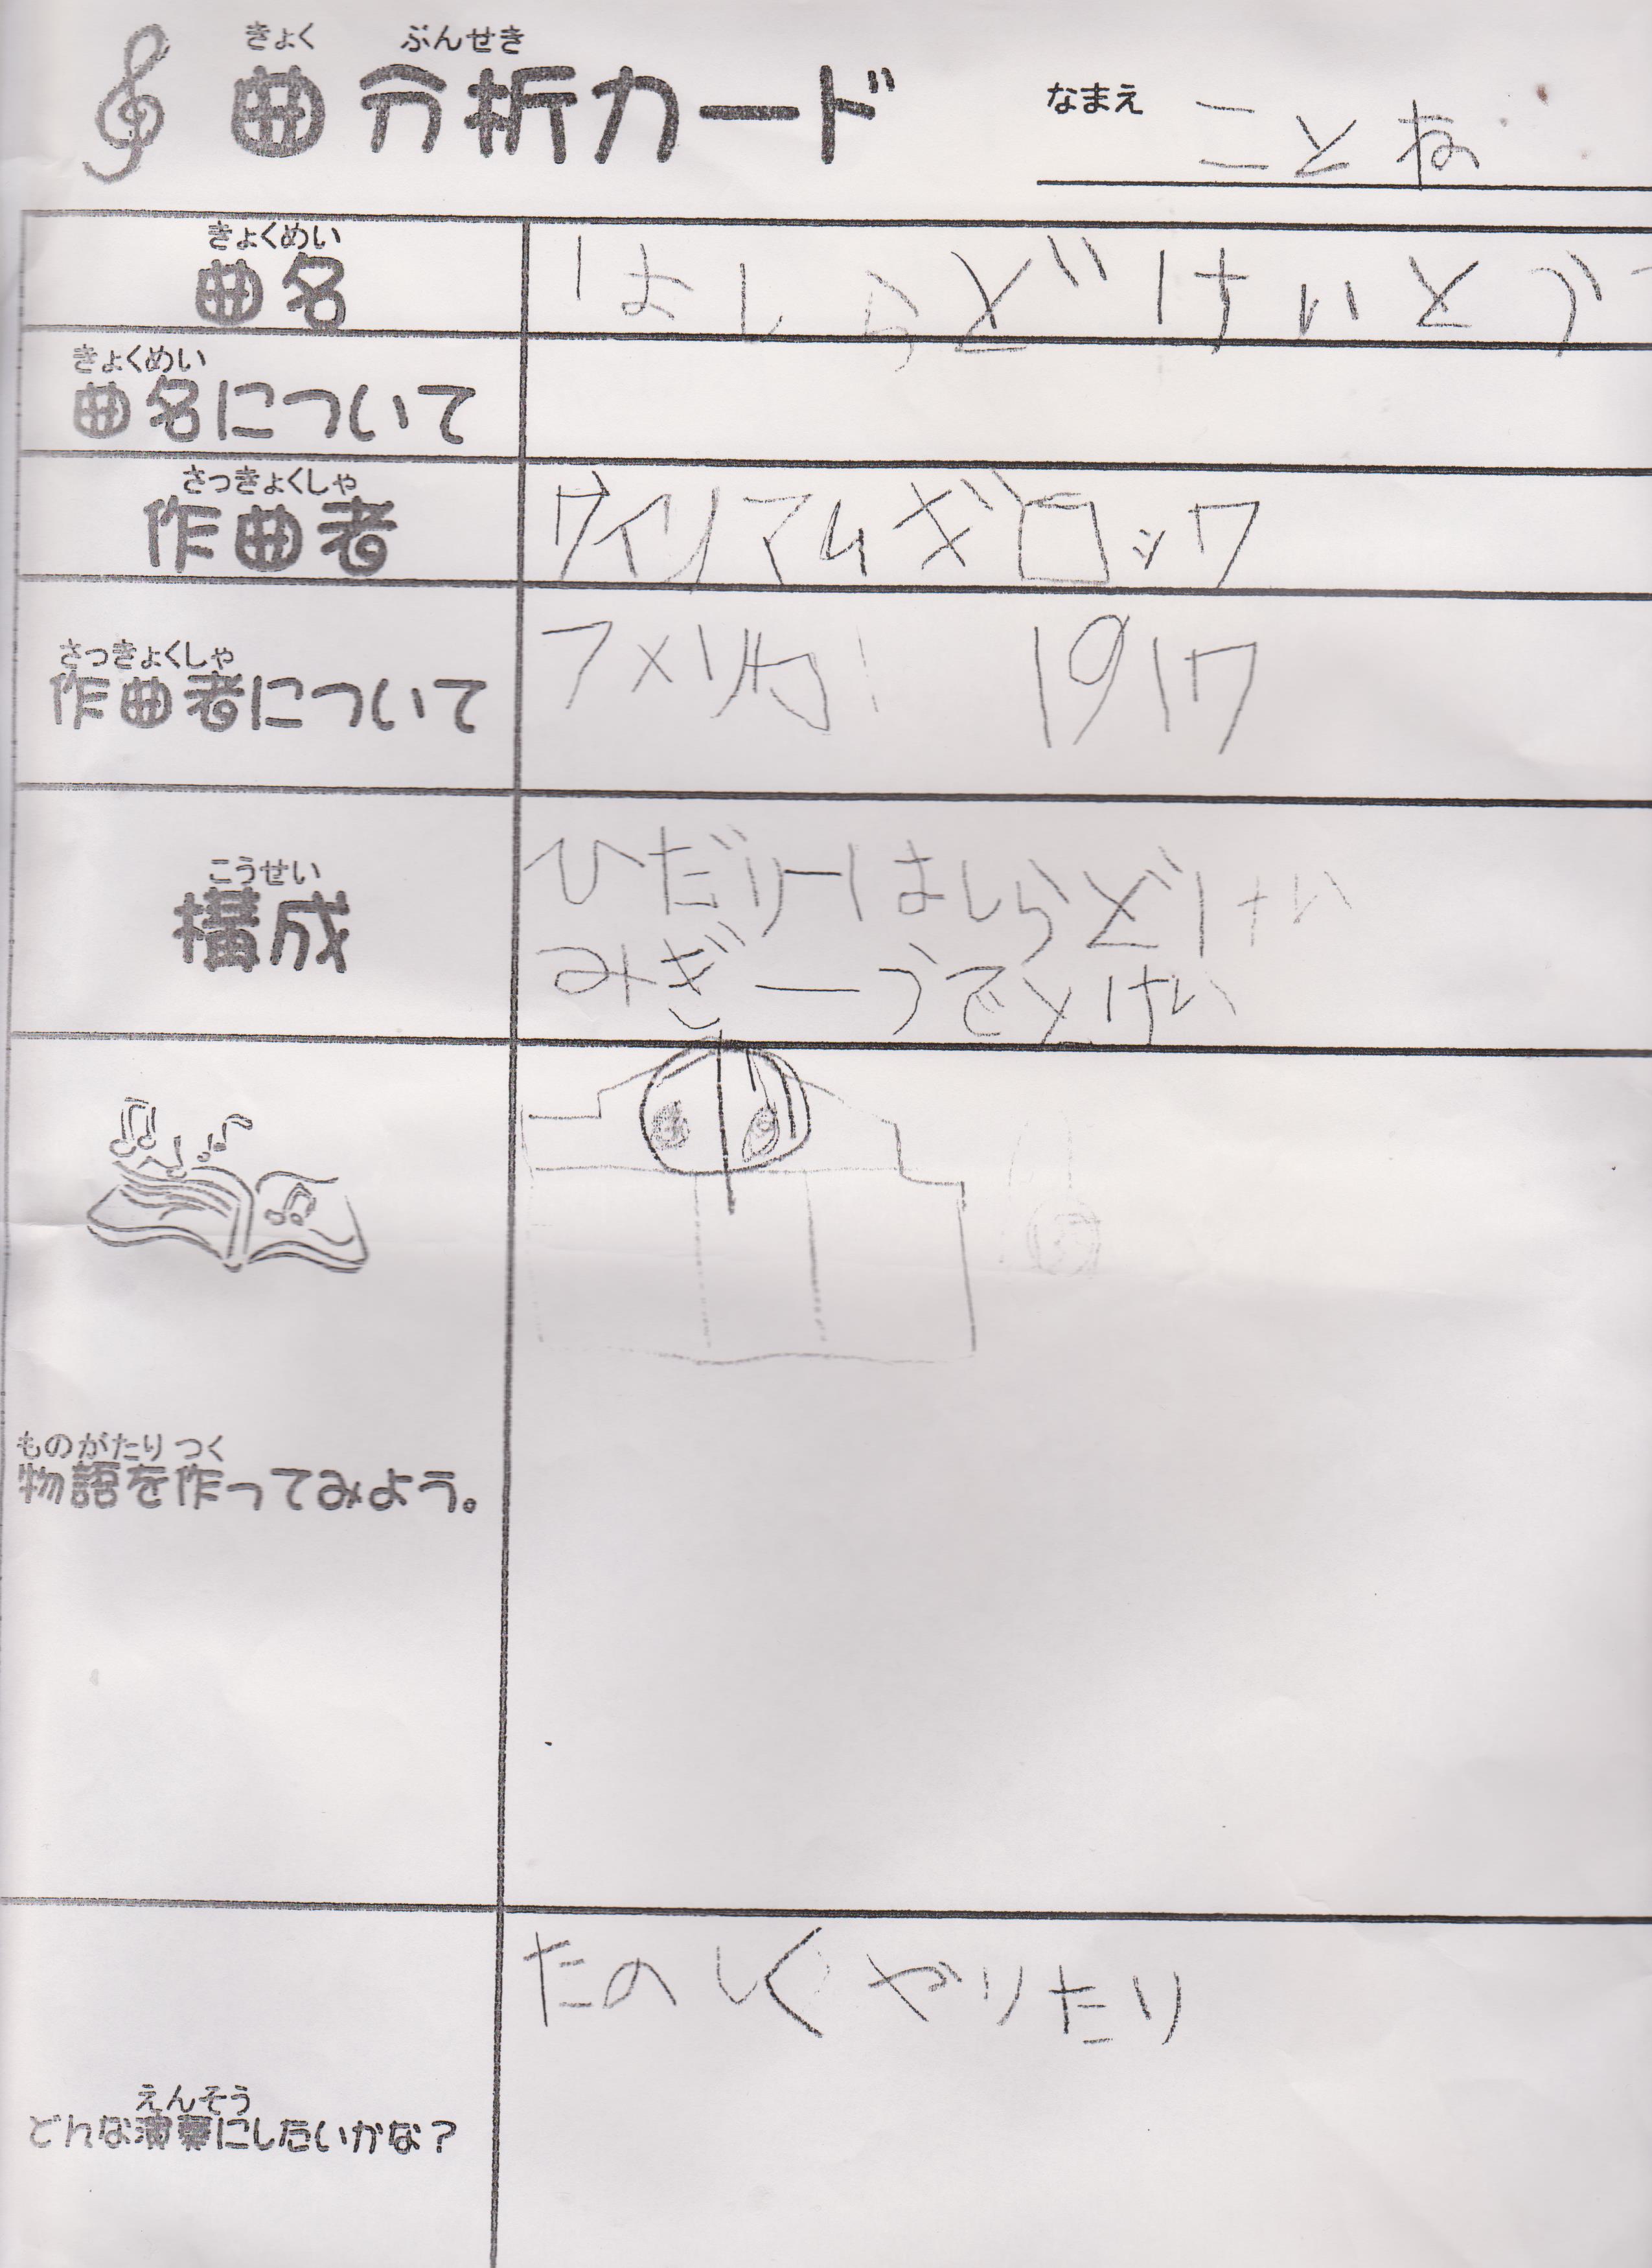 きょく ぶんせき
曲分析カード
なまえ ことね
きょくめい
曲名 はしらどけいとう
きょくめい
曲名について
さっきょくしゃ
作曲者 ウイリアムギロック
さっきょくしゃ
作曲者について アメリカ 1917
こうせい
構成 ひだりーはしらどけい
みぎーうでとけい
ものがたり つく
物語を作ってみよう。
たのしくやりたい
えんそう
どんな演奏にしたいかな?